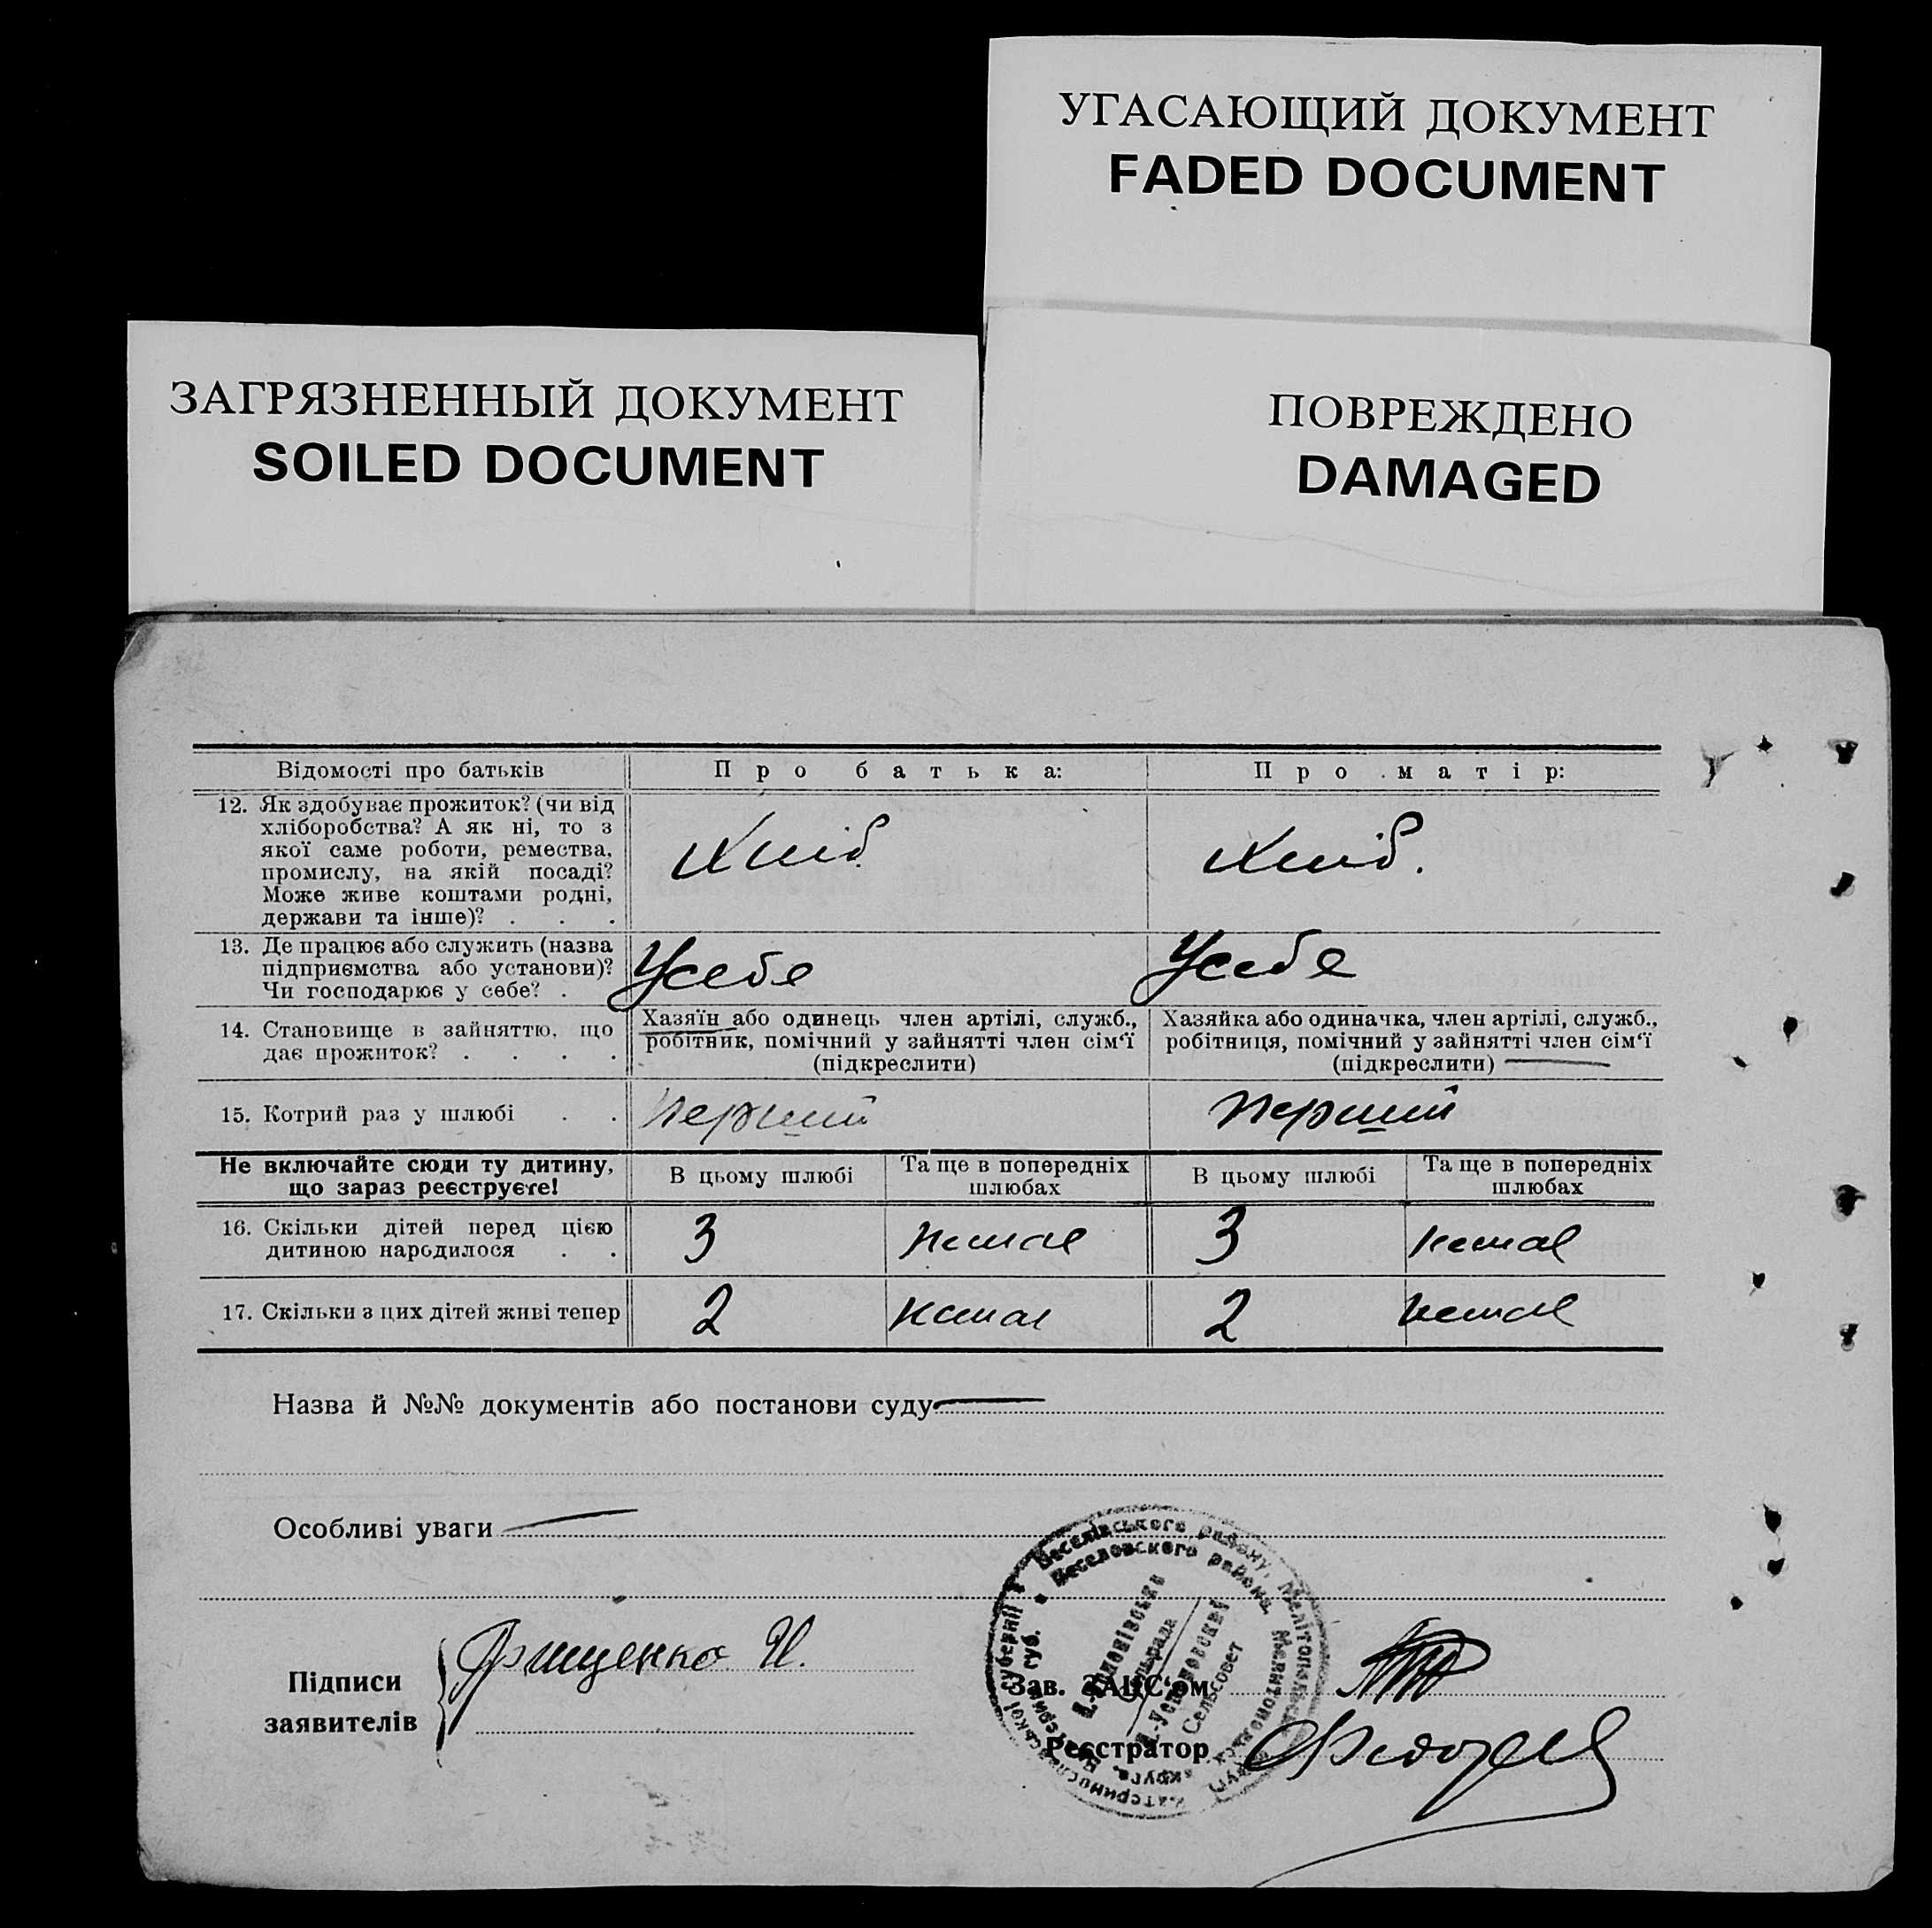 УГАСАЮЩИЙ ДОКУМЕНТ
FADED DOCUMENT
ЗАГРЯЗНЕННЫЙ ДОКУМЕНТ
SOILED DOCUMENT
ПОВРЕЖДЕНО
DAMAGED
Відомості про батьків
Про батька:
Про матір:
12. Як здобуває прожиток? (чи від
хліборобства? А як ні, то з
якої саме роботи, ремества,
промислу, на якій посаді?
Може живе коштами родні,
держави та інше)? . . .
Хліб.
Хліб.
13. Де працює або служить (назва
підприємства або установи)?
Чи господарює у себе? .
У себе
У себе
14. Становище в зайняттю, що
дає прожиток? . . . .
Хазяїн або одинець член артілі, служб.,
робітник, помічний у зайнятті член сім‘ї
(підкреслити)
Хазяйка або одиначка, член артілі, служб.,
робітниця, помічний у зайнятті член сім‘ї
(підкреслити)
15. Котрий раз у шлюбі . .
перший
перший
Не включайте сюди ту дитину,
що зараз реєструєте!
В цьому шлюбі
Та ще в попередніх
шлюбах
В цьому шлюбі
Та ще в попередніх
шлюбах
16. Скільки дітей перед цією
дитиною народилося . .
3
немає
3
немає
17. Скільки з цих дітей живі тепер
2
немає
2
немає
Назва й №№ документів або постанови суду
Особливі уваги
Підписи
заявителів
Грищенко И.
Зав. ЗАГС‘ом
Реєстратор
Веселівського району, Мелітопольськ
Веселовского района,
Сельсовет